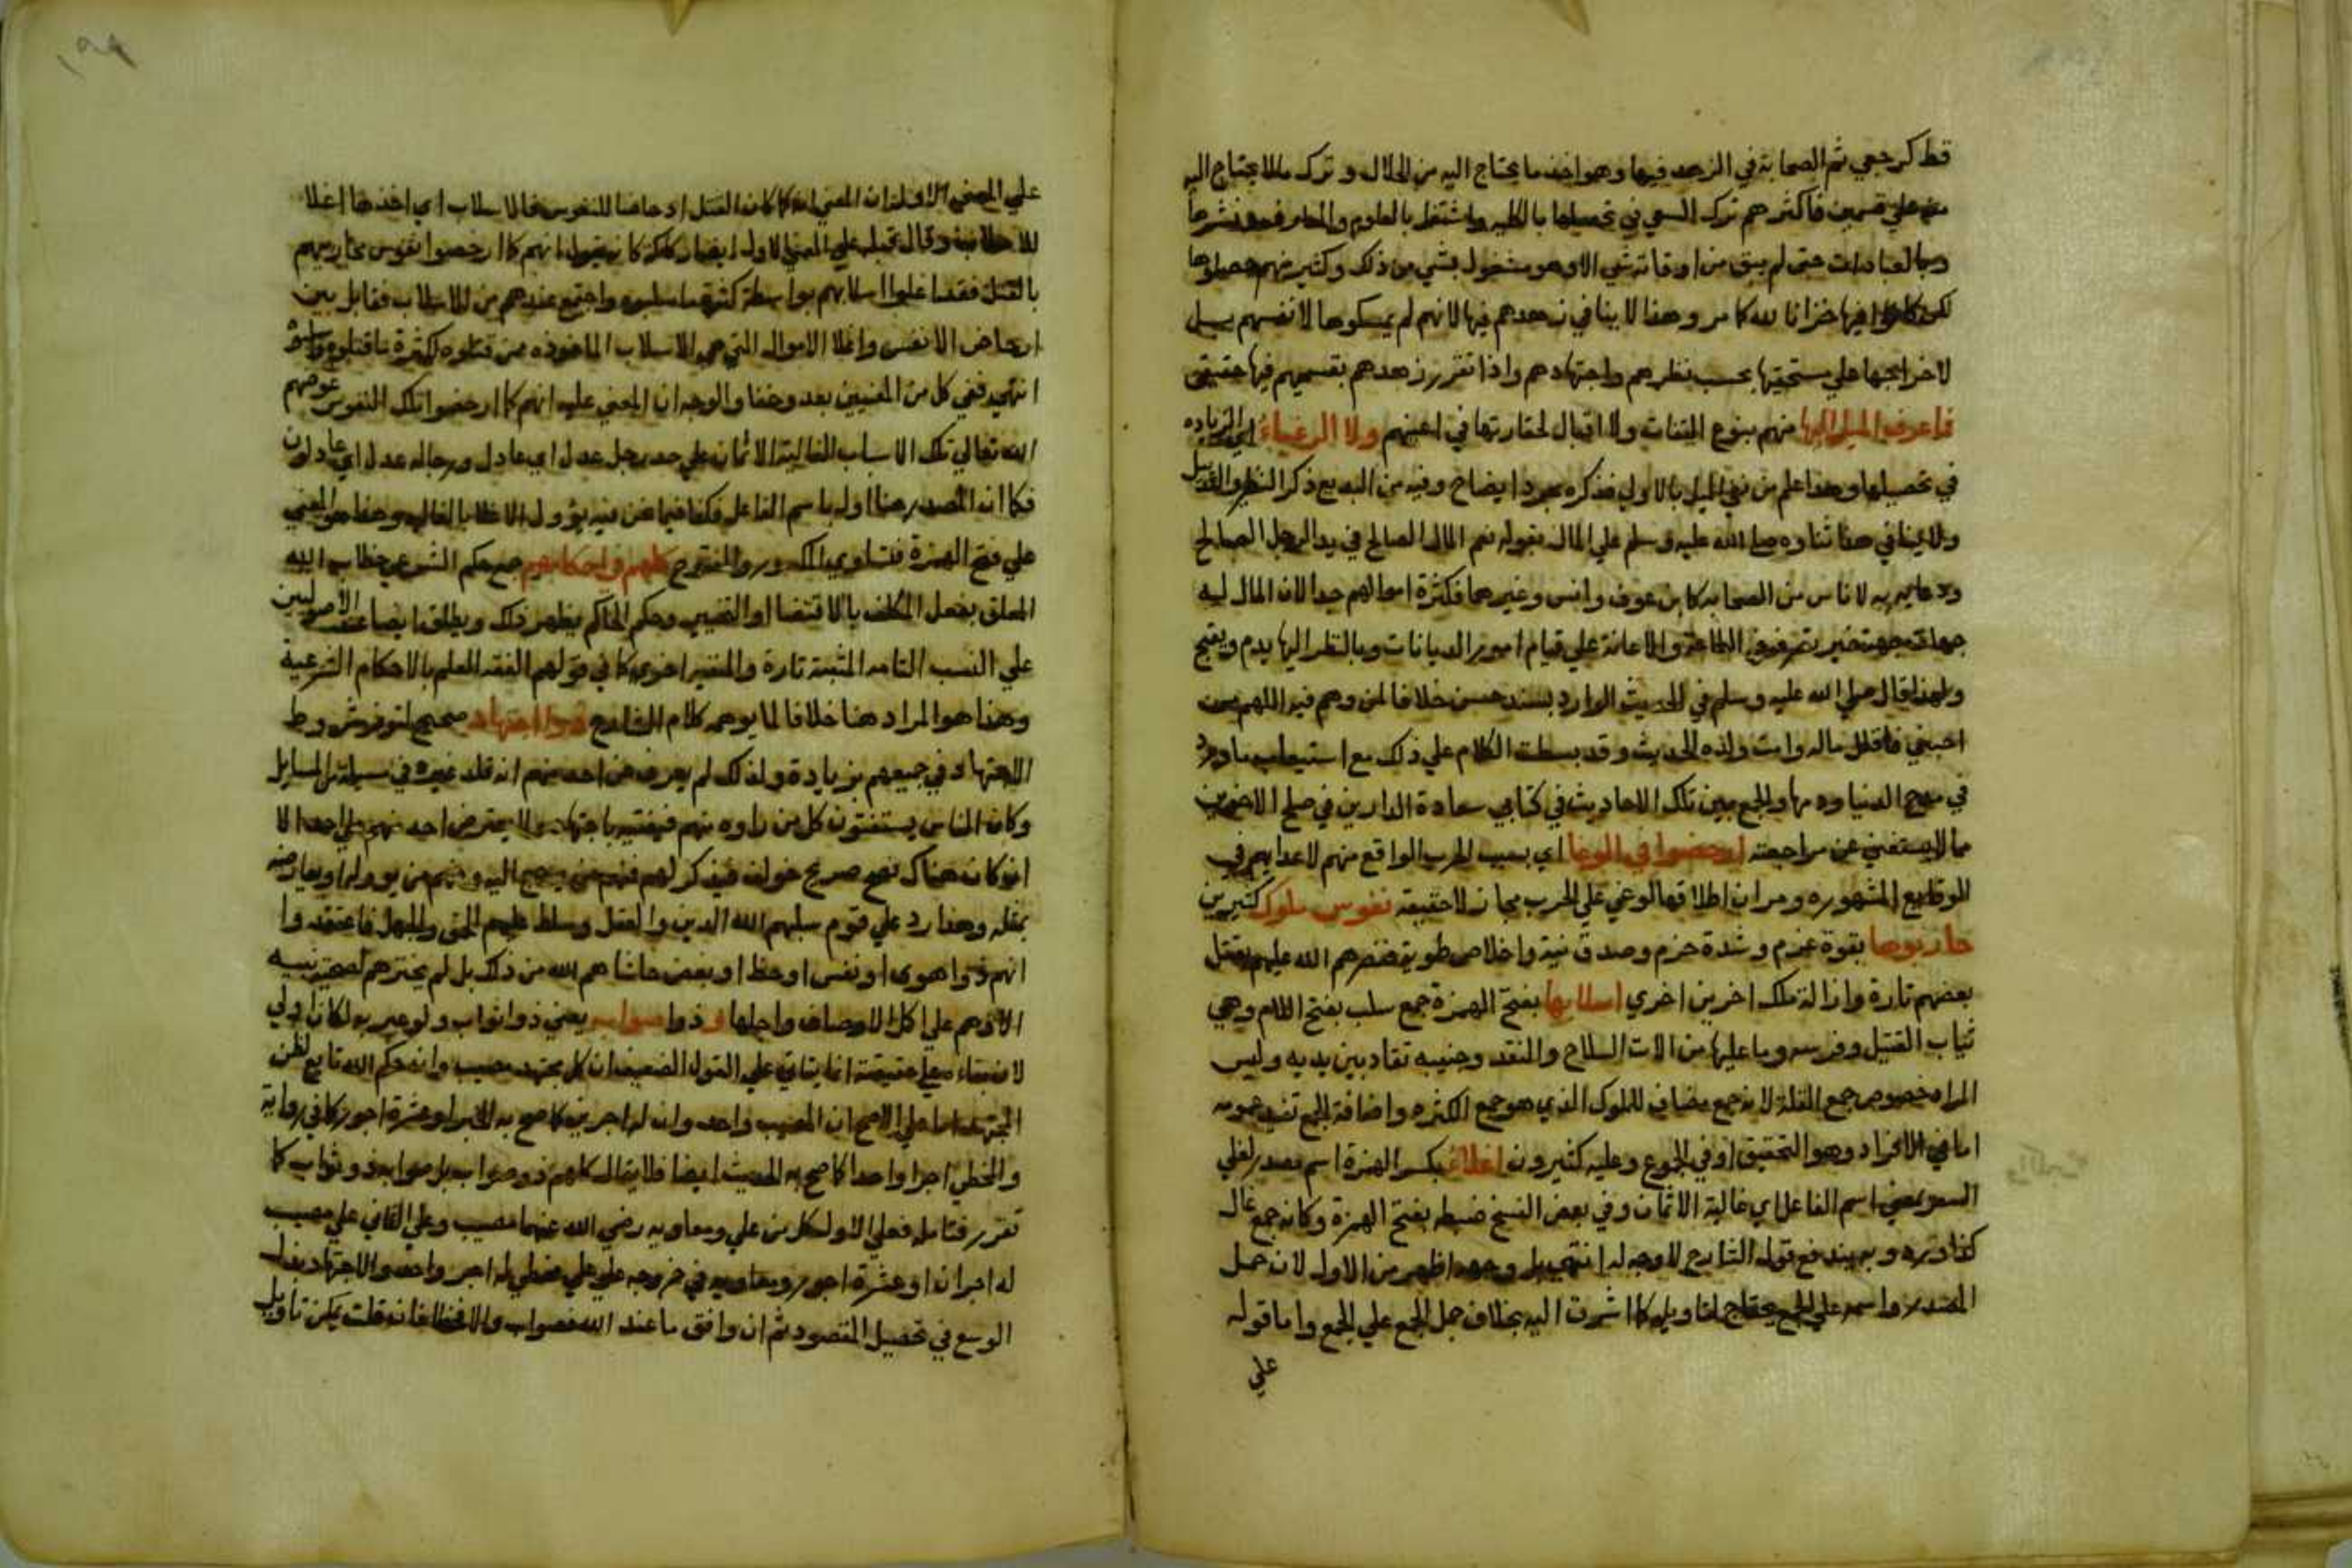 قط كرجعي ثم الصحابة في الزهد فيها وهو اخذ ما يحتاج اليه من الحلال وترك ما لا يحتاج اليه
علي قسمين فاكثرهم ترك السعي في تحصيلها بالكليه واشتغل بالعلوم والمعارف ونشرها
وبالعبادات حتى لم يبق من اوقاته شي الا وهو مشغول بشي من ذلك وكثير منهم حصلوها
لكن كانوا فيها خزانا لله كما مر وهذا لا ينافي زهدهم فيها لانهم لم يمسكوها لانفسهم بل
لاخراجها علي مستحقيها بحسب نظرهم واجتهادهم واذا تقرر زهدهم بقسميهم فيها حقيقي
فما عرف الميل اليها منهم بنوع التفات ولا اقبال لحقارتها في اعينهم ولا الرغباء اي الزياده
في تحصيلها وهذا علم من نفي الميل بالاولي فذكره مجرد ايضاح وفيه من البديع ذكر النظير
ولا ينافي هذا ثناوه صلى الله عليه وسلم علي المال بقوله نعم المال الصالح في يد الرجل الصالح
ودعاءه به لاناس من الصحابه كابن عوف وانس وغيرهما فكثرة اموالهم جدا لان المال ليه
جهات جهة خير بصرفه في الطاعة والاعانة علي قيام امور الديانات وبالنظر اليها يدم ويقبح
ولهذا قال صلي الله عليه وسلم في الحديث الوارد بسند حسن خلافا لمن وهم فيه اللهم من
احبني فاقلل ماله وامت ولده الحديث وقد بسطت الكلام علي ذلك مع استيعاب ما ورد
في مدح الدنيا وذمها والجمع بين تلك الاحاديث في كتابي سعادة الدارين في صلح الاخوين
مما لا يستغني عن مراجعته ارخصوا في الوغا اي بسبب الحرب الواقع منهم لاعدايهم في
الوقايع المشهوره ومر ان اطلاقها لوغي علي الحرب مجاز لا حقيقه نفوس ملوك كثيرين
حاربوها بقوة عزم وشدة حزم وصدق نية واخلاص طوية فنصرهم الله عليهم بقتل
بعضهم تارة وازالة ملك اخرين اخري اسلابها بفتح الهمزة جمع سلب بفتح اللام وهي
ثياب القتيل وفرسه وما عليها من الات السلاح والنقد وجنيبه تقاد بين يديه وليس
المراد خصوص جمع القلة لانه جمع مضاف للملوك الذي هو جمع الكثره واضافة الجمع تفيد عمومه
اما في الافراد وهو التحقيق او في الجموع وعليه كثيرون اغلاء بكسر الهمزة اسم مصدر لغلي
السعر بمعني اسم الفاعل اي غالية الاثمان وفي بعض النسخ ضبطه بفتح الهمزة وكانه جمع غال
كذا وبه يندفع قول الشارح لاوجه له انتهي بل وجهه اظهر من الاول لان حمل
المصدر واسمه علي الجمع يحتاج لتاويل كما اشرت اليه بخلاف حمل الجمع علي الجمع واما قوله
علي
علي المعني الاول ان المعني انه كما كان القتل ارخاصا للنفوس فالاسلاب اي اخذها اغلا
وقال قبله علي المعني الاول ايضا كانه يقول انهم كما ارخصوا نفوس محاربيهم
بالقتل فقد اغلوا اسلابهم بواسطة كثرة ما سلبوه واجتمع عندهم من الاسلاب فقابل بين
ارخاص الانفس واغلا الاموال التي هي الاسلاب الماخوذه ممن قتلوه لكثرة ما قتلوا وسلبوا
انتهي ففي كل من المعنيين بعد وخفا والوجه ان المعني عليه انهم كما ارخصوا تلك النفوس عوضهم
الله تعالي تلك الاسلاب الغالية الاثمان علي حد رجل عدل اي عادل ورجاله عدل اي عادلون
فكما ان المصدر هنا اول باسم الفاعل فكذا فيما نحن فيه يؤول الاغلا بالغاليه وهذا هو المعني
علي فتح الهمزة فتساوي المكسور والمفتوح كلهم في احكامهم جمع حكم الشرعي خطاب الله
المعلق بفعل المكلف بالاقتضا او التخيير وحكم الحاكم يظهر ذلك ويطلق ايضا عند الاصوليين
علي النسب التامه المثبتة تارة والمنفية اخري كما في قولهم الفقه العلم بالاحكام الشرعية
وهذا هو المراد هنا خلافا لما يوهمه كلام الشارح ذوا اجتهاد صحيح لتوفر شروط
الاجتهاد في جميعهم بزيادة ولذلك لم يعرف عن احد منهم انه قلد غيره في مسيلة من المسايل
وكان الناس يستفتون كل من راوه منهم فيفتيه باجتهاده ولا يعترض احد منهم علي احد الا
ان كان هناك نص صريح خولف فيذكر لهم فمنهم من يرجع اليه ومنهم من يووله او يعارضه
بمثله وهذا رد علي قوم سلبهم الله الدين والعقل وسلط عليهم المقت والجهل فاعتقدوا
انهم ذوا هوى او نفس او حظ او بغض حاشاهم الله من ذلك بل لم يخترهم لصحبة نبيه
الا وهم علي اكمل الاوصاف واجلها وذوا صواب يعني ذوا ثواب ولو عبر به لكان اولي
لان بقاءه علي حقيقته انما يتاتي علي القول الضعيف ان كل مجتهد مصيب وان حكم الله تابع لظن
المجتهد اما علي الاصح ان المصيب واحد وان له اجرين كما صح به الخبر او عشرة اجور كما في رواية
والمخطي اجرا واحدا كما صح به الحديث ايضا فلا يقال كلهم ذو صواب بل صوابه ذو ثواب كما
تقرر فتامله فعلي الاول كل من علي ومعاويه رضي الله عنهما مصيب وعلي الثاني علي مصيب
له اجران او عشرة اجور ومعاويه في خروجه علي علي مخطي له اجر واحد والاجتهاد بذل
الوسع في تحصيل المقصود ثم ان وافق ما عند الله فصواب والا فخطا فان قلت يمكن تاويل